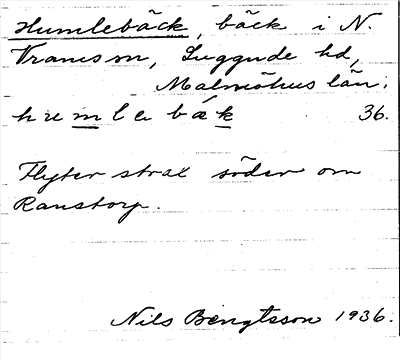 Humlebäck, bäck i N.
Vramson, Luggude hd,
Malmöhus län.
humlebæk 36.
Flyter strax söder om
Ranstorp.
Nils Bengtsson 1936.